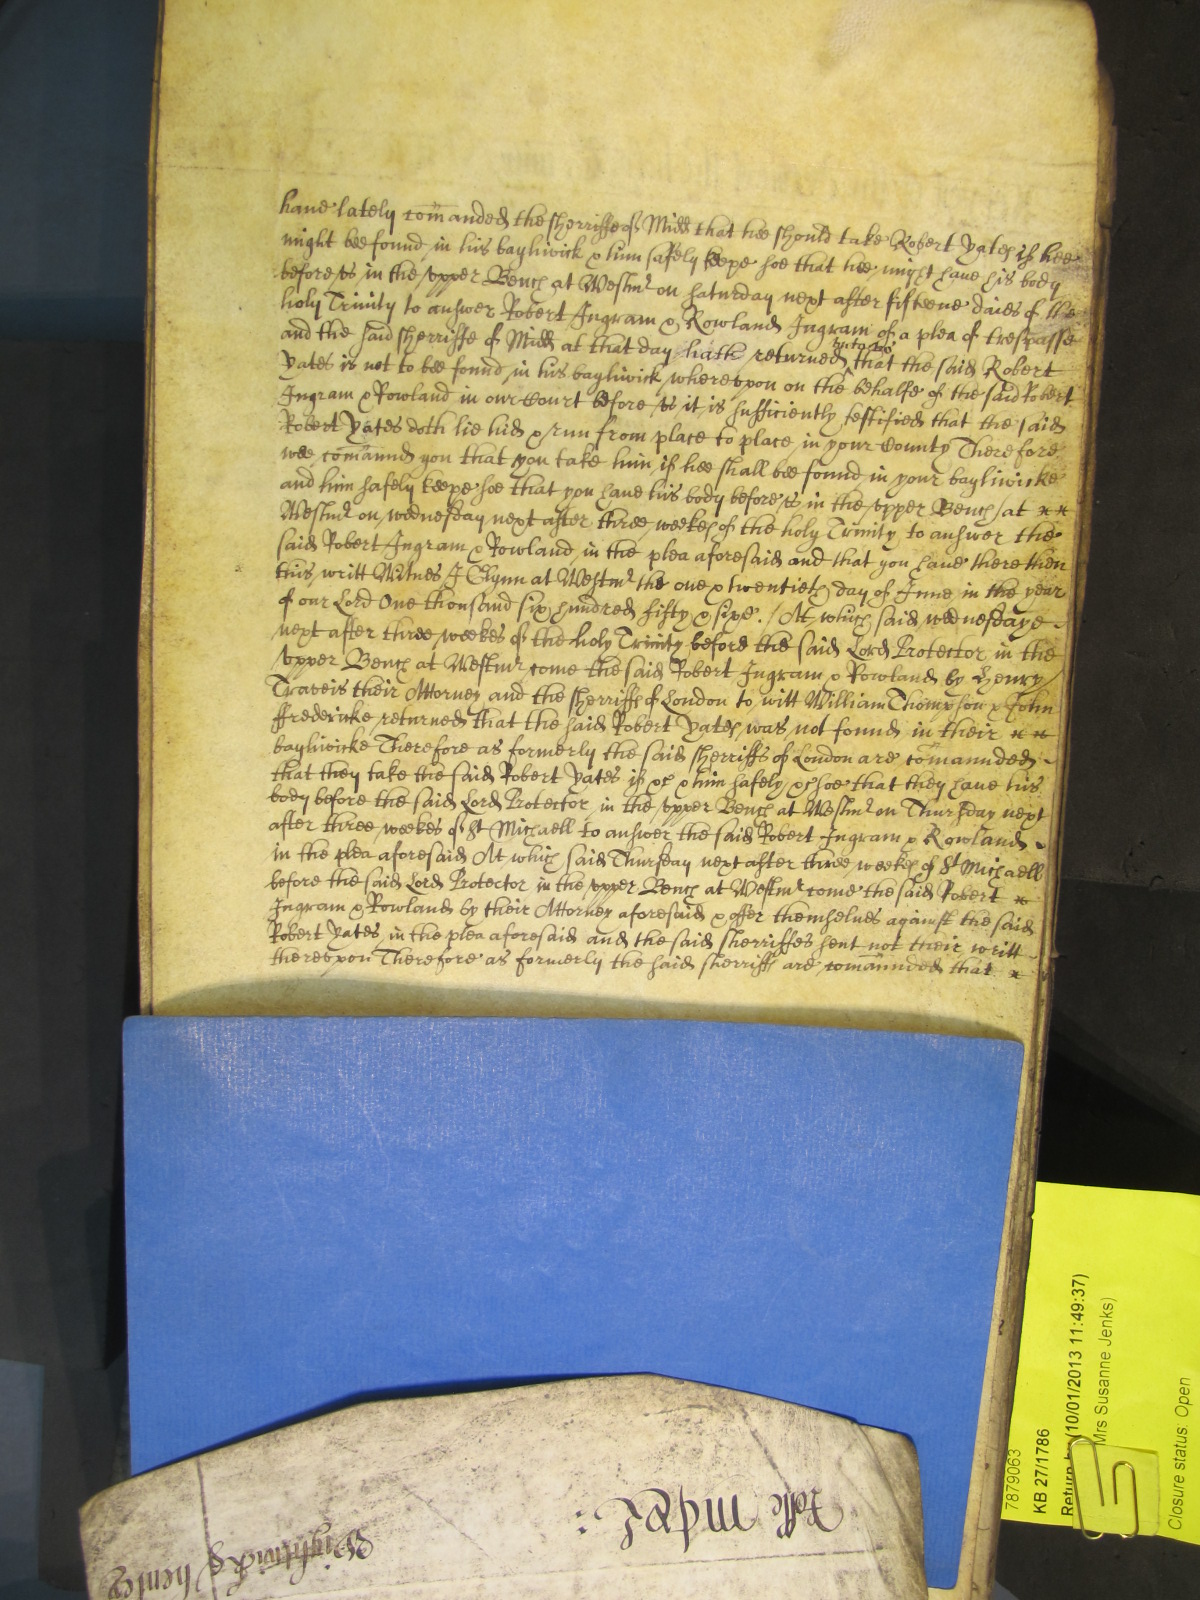 have lately comanded the sherriffe of Midd that hee should take Robert Yates if hee
might bee found in his bayliwick & him safely keepe soe that hee might have his body
before us in the upper Bench at Westmr on saturday next after fifteene daies of the
holy Trinity to answer Robert Ingram & Rowland Ingram of a plea of trespasse
and the said sherriffe of Midd at that day hath returned unto us that the said Robert
Yates is not to bee found in his bayliwick whereupon on the behalfe of the said Robert
Ingram & Rowland in our Court before us it is sufficiently testified that the said
Robert Yates doth lie hid & run from place to place in your County Therefore
wee comannd you that you take him if hee shall bee found in your bayliwicke
and him safely keepe soe that you have his body before us in the upper Bench at
Westmr on wednesday next after three weekes of the holy Trinity to answer the
said Robert Ingram & Rowland in the plea aforesaid and that you have there then
this writt Witnes J Glynn at Westmr the one & twentieth day of June in the year
of our Lord One thousand six hundred fifty & sixe. / At which said wednesdaye
next after three weekes of the holy Trinity before the said Lord Protector in the
upper Bench at Westmr come the said Robert Ingram & Rowland by Henry
Traveis their Attorney and the sherriffs of London to witt William Thompson & John
ffredericke returned that the said Robert Yates was not found in their
bayliwicke Therefore as formerly the said sherriffs of London are comannded
that they take the said Robert Yates if &c & him safely &c soe that they have his
body before the said Lord Protector in the upper Bench at Westmr on Thursday next
after three weekes of St Michaell to answer the said Robert Ingram & Rowland
in the plea aforesaid At which said Thursday next after three weekes of St Michaell
before the said Lord Protector in the upper Bench at Westmr come the said Robert
Ingram & Rowland by their Attorney aforesaid & offer themselves against the said
Robert Yates in the plea aforesaid and the said sherriffes sent not their writt
thereupon Therefore as formerly the said sherriffs are comannded that
7879063
KB 27/1786
Return by (10/01/2013 11:49:37)
Mrs Susanne Jenks)
Closure status: Open